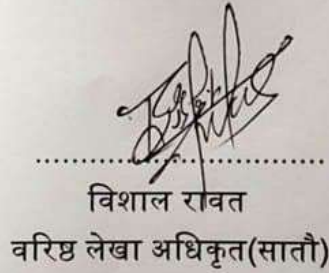 विशाल रावत
वरिष्ठ लेखा अधिकृत(सातौ)